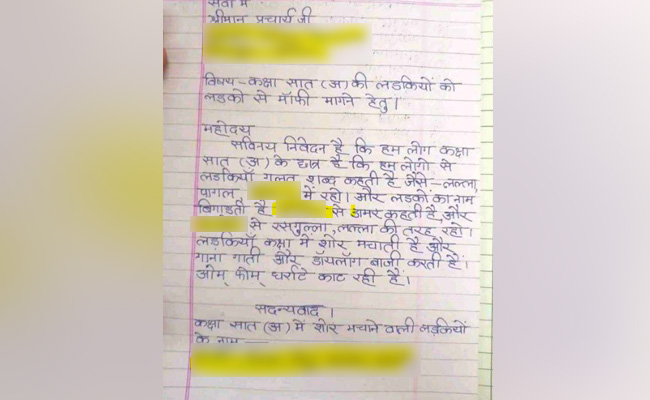 सेवा में
श्रीमान प्रचार्य जी
विषय - कक्षा सात (अ) की लडकियों को
लडको से मॉफी मागने हेतु।
महोदय
सविनय निवेदन है कि हम लोग कक्षा
सात (अ) के छात्र है कि हम लोगो से
लडकियाँ गलत शब्द कहती है जैसे - लल्ला,
पागल, में रहो। और लडको का नाम
बिगाडती है से डामर कहती है, और
से रसगुल्ला, लल्ला की तरह रहो।
लडकियाँ कक्षा में शोर मचाती है और
गाना गाती और डॉयलॉग बाजी करती है।
ओम् फोम् धर्राटे काट रही है।
सदन्यवाद।
कक्षा सात (अ) में शोर मचाने वाली लडकियों
के नाम —